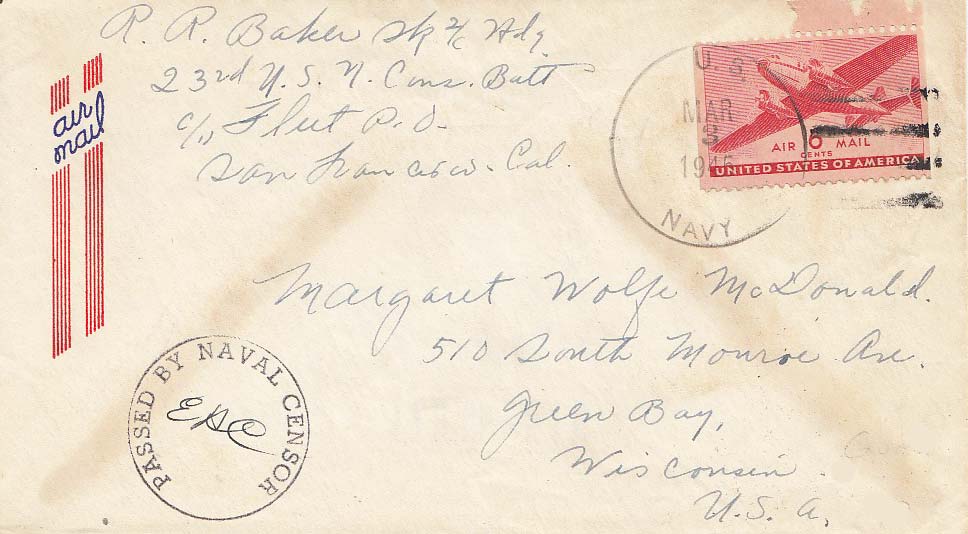 R. R. Baker Sk 2/c Hdq.
23rd U. S. N. Cons. Batt
c/o Fleet P. O.
San Francisco. Cal.
air
mail
U. S.
MAR
3
1945
NAVY
AIR 6 MAIL
CENTS
UNITED STATES OF AMERICA
Margaret Wolfe McDonald.
510 South Monroe Ave.
Green Bay,
Wisconsin
U. S. A.
PASSED BY NAVAL CENSOR